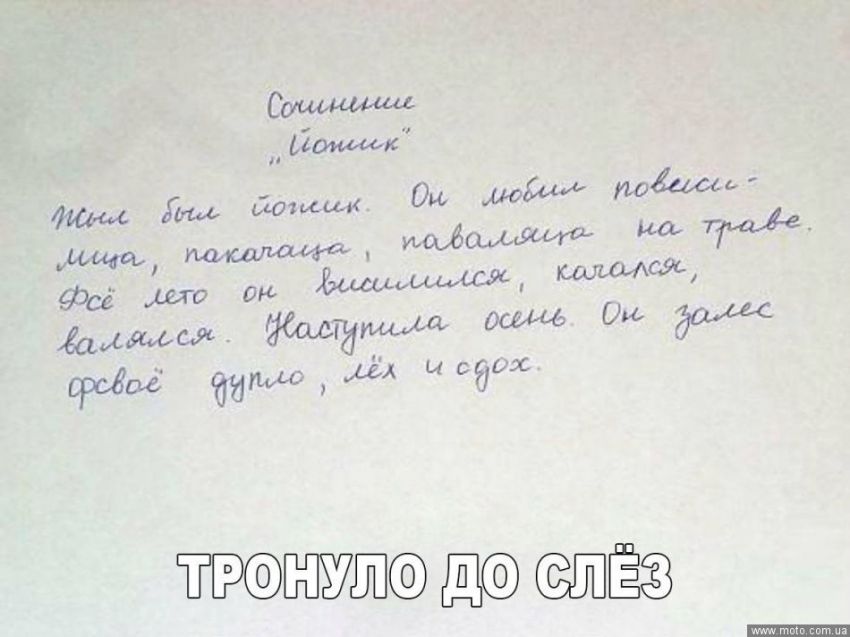 Сочинение
„Йожик"
Жыл был йожик. Он любил повиси-
лица, пакачаца, паваляца на траве.
Фсё лето он висилился, качался,
валялся. Наступила осень. Он залес
фсвоё дупло, лёх и одох.
ТРОНУЛО ДО СЛЁЗ
www.moto.com.ua